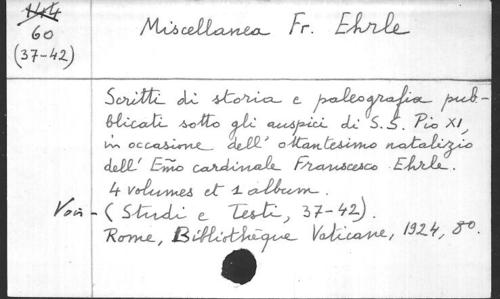 144
60
(37-42)
Miscellanea Fr. Ehrle
Scritti di storia e paleografia pub-
blicati sotto gli auspici di S.S. Pio XI,
in occasione dell' ottantesimo natalizio
dell' Emo cardinale Franscesco Ehrle.
4 volumes et 1 album.
Voir - (Studi e Testi, 37-42).
Rome, Bibliothèque Vaticane, 1924, 8º.